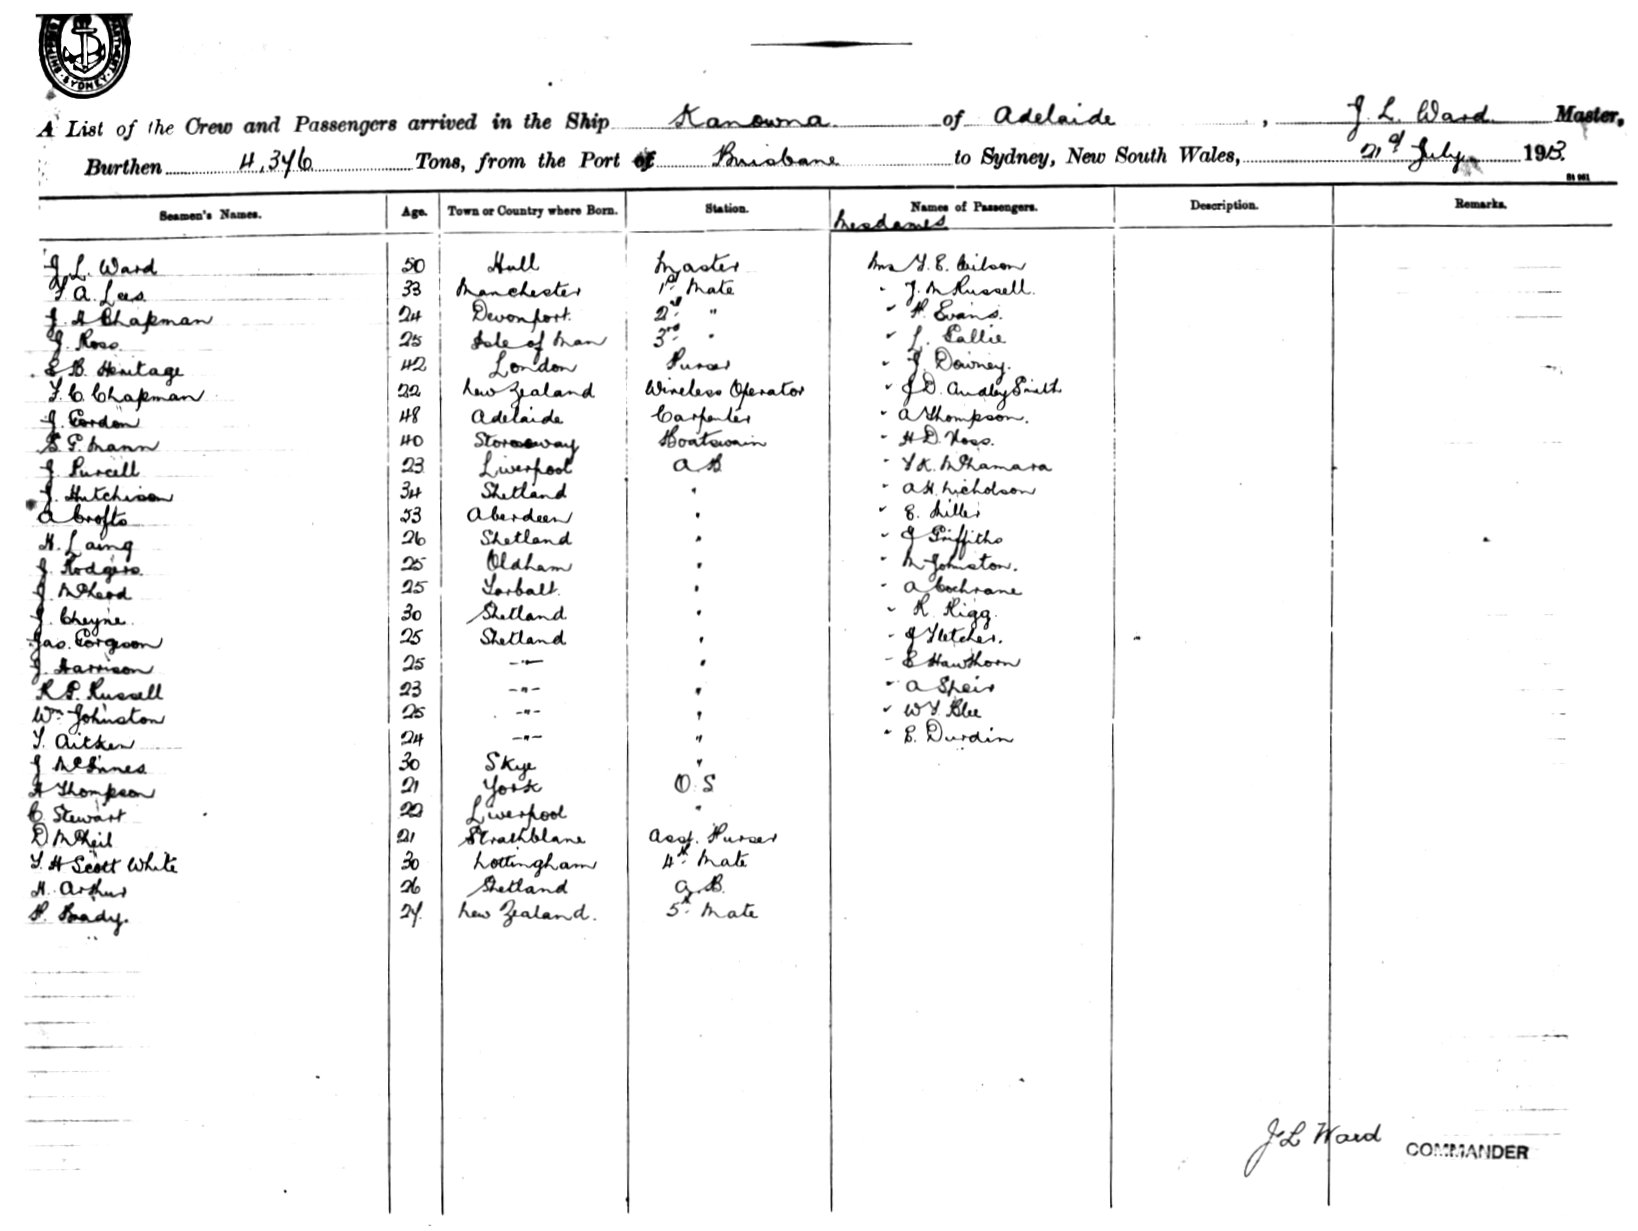 SYDNEY
A List of the Crew and Passengers arrived in the Ship Kanowna of Adelaide, J. L. Ward Master,
Burthen 4,346 Tons, from the Port of Brisbane to Sydney, New South Wales, 21st July 1913.
Seamen's Names. Age. Town or Country where Born. Station. Names of Passengers. Description. Remarks.
Mesdames
J. L. Ward 50 Hull Master Mrs T. E. Wilson
T. A. Lees 33 Manchester 1st Mate " J. M Russell
J. A Chapman 24 Devonport. 2nd " " P. Evans.
J. Ross 25 Isle of Man 3rd " " L. Lallie
E B. Heritage 42 London Purser " J. Downey.
T. C Chapman 22 New Zealand Wireless Operator " J D. Audley Smith
J. Gordon 48 Adelaide Carpenter " A Thompson.
E G. Mann 40 Stornoway Boatswain " H D. Voss.
J. Purcell 23 Liverpool A B " T K. McNamara
J. Hutchison 34 Shetland " " A H. Nicholson
A Crofts 53 Aberdeen " " E. Miller
H. Laing 26 Shetland " " J Griffiths
J. Rodgers 25 Oldham " " M Johnston.
J. McLeod 25 Torbalt. " " A Cochrane
J. Cheyne 30 Shetland " " R. Rigg.
Jas. Gorgson 25 Shetland " " J Fletcher.
J. Harrison 25 -"- " " E Hawthorn
R G. Russell 23 -"- " " A Speir
Wm Johnston 25 -"- " " W T. Blee
T. Aitken 24 -"- " " E. Durdin
J McInnes 30 Skye "
A Thompson 21 York O. S
C. Stewart 22 Liverpool "
D McNeil 21 Strathblane Asst. Purser
T. H Scott White 30 Nottingham 4th Mate
H. Arthur 26 Shetland A. B.
P. Brady. 27 New Zealand. 5th Mate
J L Ward COMMANDER